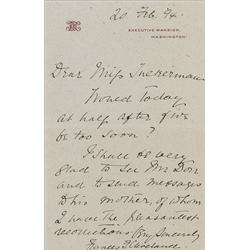 20 Feb. 94.
EXECUTIVE MANSION,
WASHINGTON.
Dear Miss Tuckerman
Would Today
at half after five
be too soon?
I shall be very
glad to see Mr Dorr
and to send messages
to his mother, of whom
I have the pleasantest
recollections. Very Sincerely
Frances F. Cleveland.